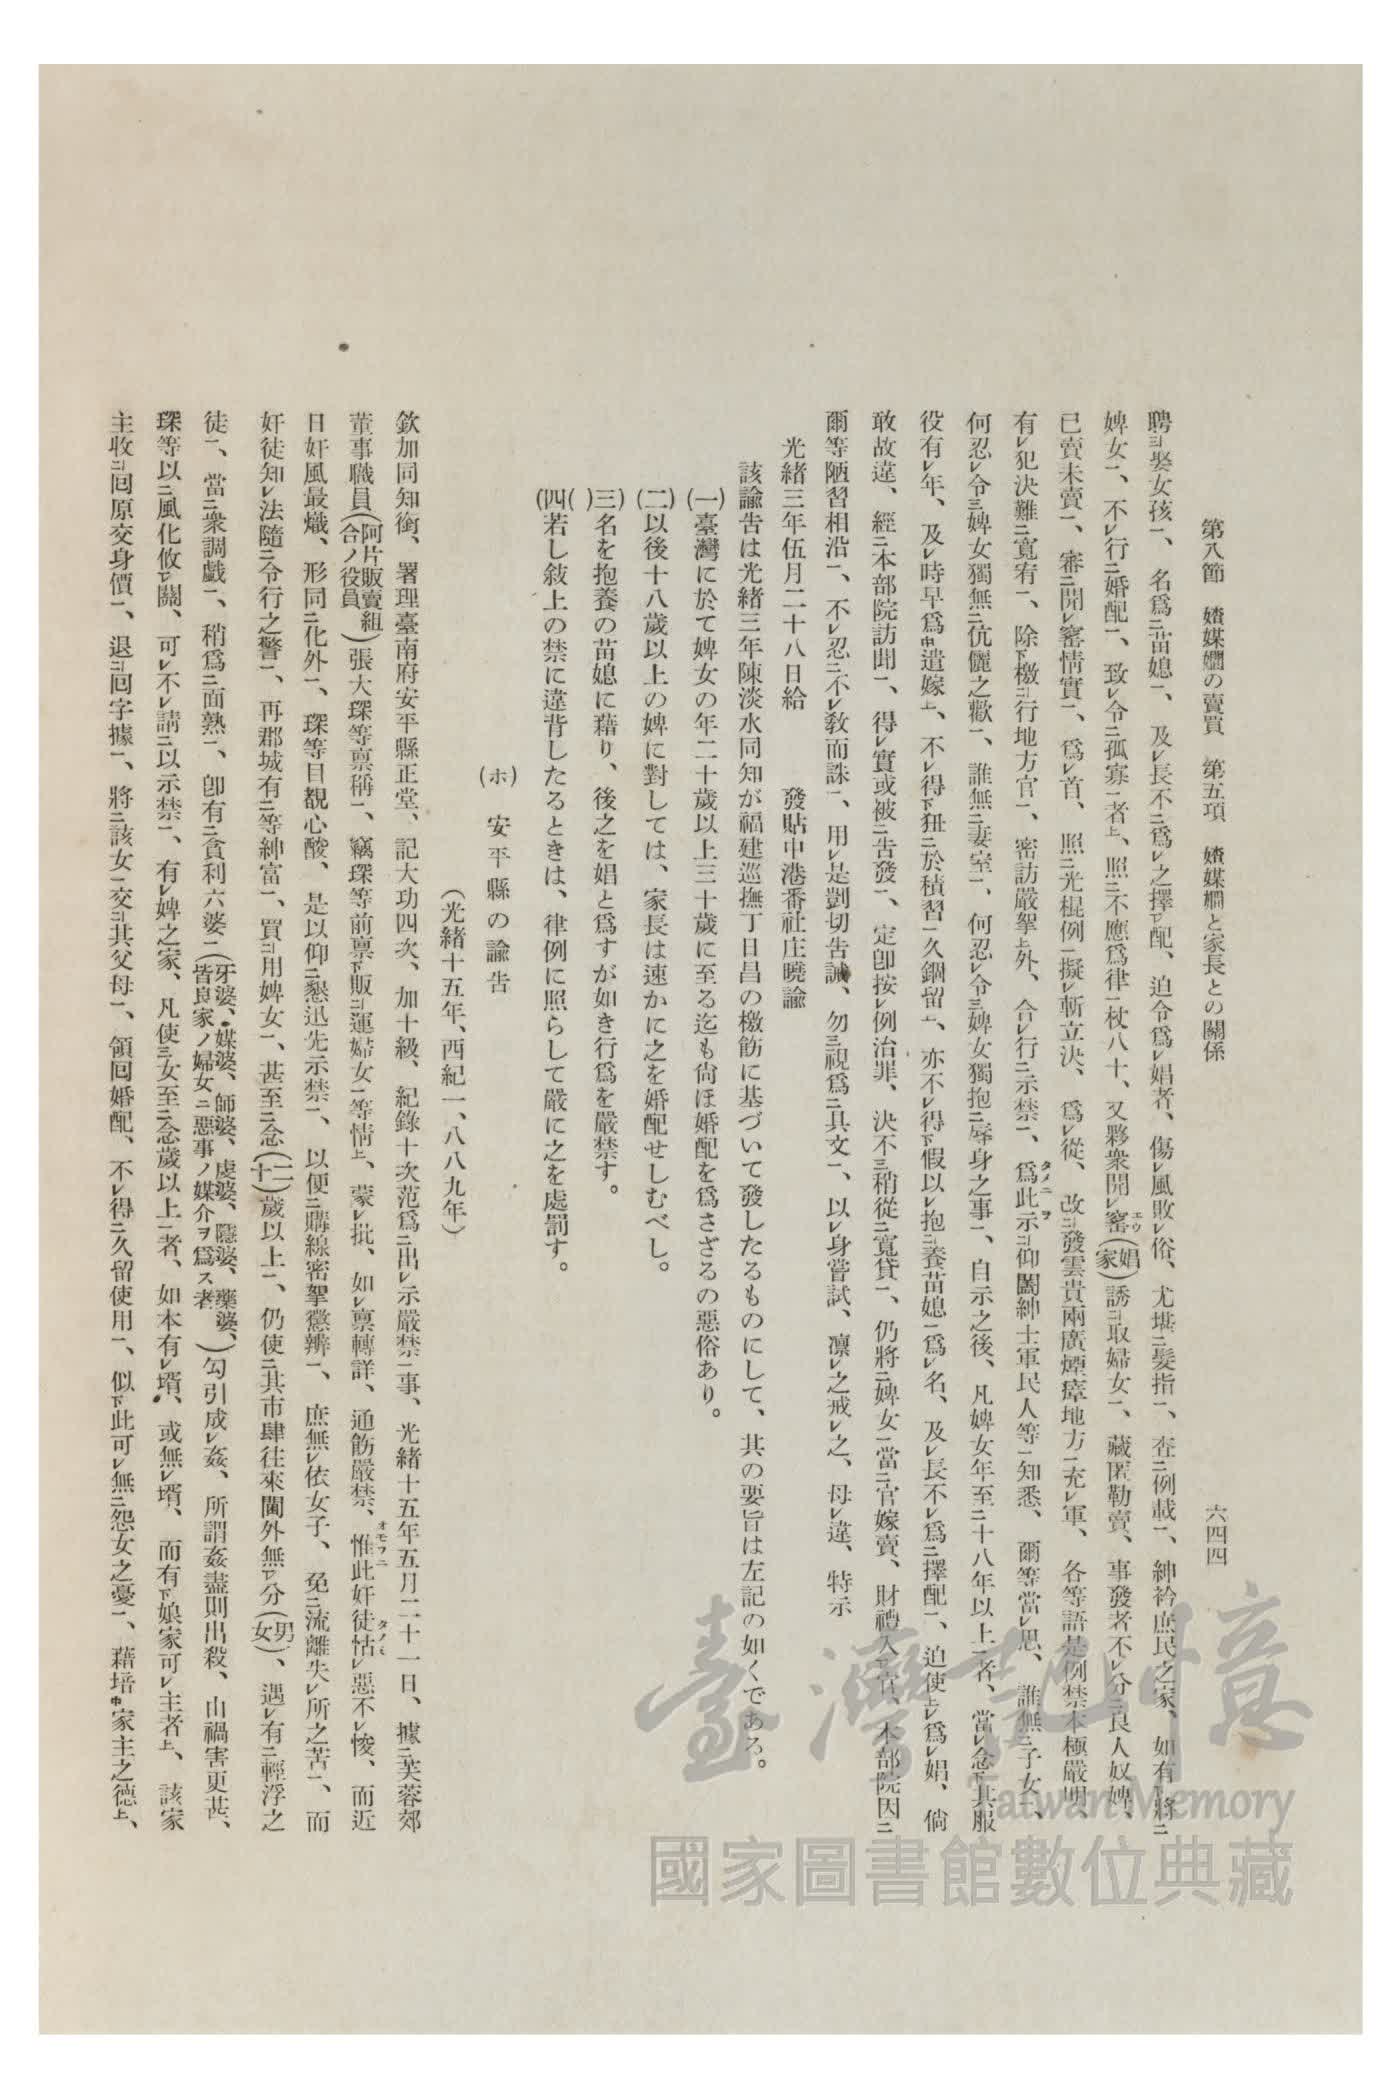 第八節　媎媒嫺の賣買　第五項　媎媒嫺と家長との關係
六四四
聘ニ娶女孩一、名爲ニ苗媳一、及レ長不ニ爲レ之擇下配、迫令爲レ娼者、傷レ風敗レ俗、尤堪ニ髮指一、査ニ例載一、紳衿庶民之家、如有下將ニ
婢女一、不レ行ニ婚配一、致レ令ニ孤寡一者上、照ニ不應爲律一杖八十、又夥衆開レ窰(娼家)誘コ取婦女一、藏匿勒賣、事發者不レ分ニ良人奴婢、
已賣未賣一、審ニ開レ窰情實一、爲レ首、照ニ光棍例一擬レ斬立決、爲レ從、改コ發雲貴兩廣煙瘴地方一充レ軍、各等語是例禁本極嚴明、
有レ犯決難ニ寬宥一、除下檄コ行地方官一、密訪嚴拏上外、合レ行ニ示禁一、爲此示コ仰闔紳士軍民人等一知悉、爾等當レ思、誰無ニ子女一、
何忍レ令三婢女獨無ニ伉儷之歡一、誰無ニ妻室一、何忍レ令三婢女獨抱ニ辱身之事一、自示之後、凡婢女年至二十八年以上一者、當レ念下其服
役有レ年、及レ時早爲中遣嫁上、不レ得下狃ニ於積習一久錮留上、亦不レ得下假以レ抱コ養苗媳一爲レ名、及レ長不レ爲ニ擇配一、迫使上レ爲レ娼、倘
敢故違、經ニ本部院訪聞一、得レ實或被ニ告發一、定卽按レ例治罪、決不三稍從ニ寬貸一、仍將ニ婢女一當ニ官嫁賣、財禮入レ官、本部院因三
爾等陋習相沿一、不レ忍ニ不レ敎而誅一、用レ是剴切告誡、勿三視爲ニ具文一、以レ身嘗試、凛レ之戒レ之、毋レ違、特示
光緒三年伍月二十八日給　　發貼中港番社庄曉諭
該諭告は光緒三年陳淡水同知が福建巡撫丁日昌の檄飭に基づいて發したるものにして、其の要旨は左記の如くである。
(一)臺灣に於て婢女の年二十歲以上三十歲に至る迄も尙ほ婚配を爲さざるの惡俗あり。
(二)以後十八歲以上の婢に對しては、家長は速かに之を婚配せしむべし。
(三)名を抱養の苗媳に藉り、後之を娼と爲すが如き行爲を嚴禁す。
(四)若し敍上の禁に違背したるときは、律例に照らして嚴に之を處罰す。
(ホ)　安平縣の諭告
(光緒十五年、西紀一、八八九年)
欽加同知銜、署理臺南府安平縣正堂、記大功四次、加十級、紀錄十次范爲ニ出レ示嚴禁一事、光緒十五年五月二十一日、據ニ芙蓉郊
董事職員(阿片販賣組合ノ役員)張大琛等禀稱一、竊琛等前禀下販コ運婦女一等情上、蒙レ批、如レ禀轉詳、通飭嚴禁、惟此奸徒怙レ惡不レ悛、而近
日奸風最熾、形同ニ化外一、琛等目覩心酸、是以仰ニ懇迅先示禁一、以便ニ購線密拏懲辨一、庶無レ依女子、免三流離失レ所之苦一、而
奸徒知レ法隨ニ令行之警一、再郡城有ニ等紳富一、買コ用婢女一、甚至ニ念(二十)歲以上一、仍使ニ其市肆往來閫外無下分(男女)、遇レ有ニ輕浮之
徒一、當ニ衆調戲一、稍爲ニ面熟一、卽有ニ貪利六婆一(牙婆、媒婆、師婆、虔婆、隱婆、藥婆、皆良家ノ婦女ニ惡事ノ媒介ヲ爲ス者)勾引成レ姦、所謂姦盡則出殺、山禍害更甚、
琛等以ニ風化攸下關、可レ不レ請ニ以示禁一、有レ婢之家、凡使三女至ニ念歲以上一者、如本有レ壻、或無レ壻、而有下娘家可レ主者上、該家
主收コ囘原交身價一、退コ囘字據一、將ニ該女一交コ其父母一、領囘婚配、不レ得ニ久留使用一、似下此可レ無ニ怨女之憂一、藉培中家主之德上、
臺灣記憶
Taiwan Memory
國家圖書館數位典藏